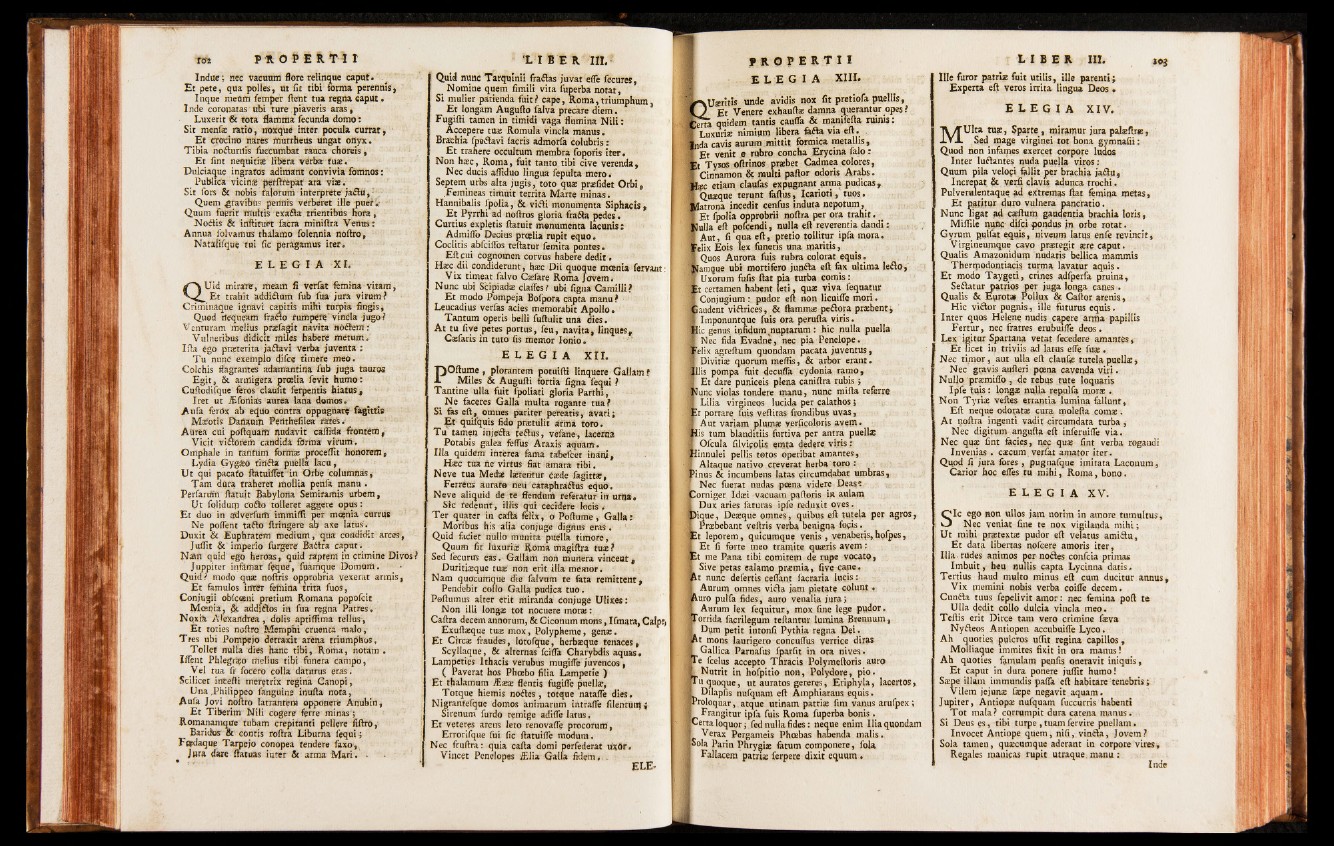 102 PROPERTII
Indue; nec vacuum flore relinque caput.
Et pete, qua polles, ut ſit tibi forma perennis,
Inque meum ſemper ſtent tua regna caput.
Inde coronatas ubi ture piaveris aras,
Luxerit & tota flamma ſecunda domo:
Sit menſæ ratio, noxque inter pocula currat,
Et crocino nares murrheus ungat onyx.
Tibia nocturnis ſuccumbat rauca choreis,
Et ſint nequitiæ libera verba tuæ.
Dulciaque ingratos adimant convivia ſomnos:
Publica vicinæ perſtrepat ara viæ.
Sit ſors & nobis talorum interprete jactu,
Quem gravibus pennis verberet ille puer.
Quum fuerit multis exacta trientibus hora,
Noctis & inſtituet ſacra miniſtra Venus:
Annua ſolvamus thalamo ſolennia noſtro,
Nataliſque tui ſic peragamus iter.
ELEGIA XI.
QUid mirare, meam ſi verſat femina vitam,
Et trahit addictum ſub ſua jura virum?
Criminaque ignavi capitis mihi turpia fingis,
Quod nequeam fracto rumpere vincla jugo?
Venturam melius præſagit navita noctem:
Vulneribus didicit miles habere metum.
Iſta ego præterita jactavi verba juventa:
Tu nunc exemplo diſce timere meo.
Colchis flagrantes adamantina ſub juga tauros
Egit, & armigera prœlia ſevit humo:
Cuſtodiſque feros clauſit ſerpentis hiatus,
Iret ut Æſonias aurea lana domos.
Auſa ferox ab equo contra oppugnare ſagittis
Mæotis Danaum Pentheſilea rates.
Aurea cui poſtquam nudavit caſſida frontem,
Vicit victorem candida forma virum.
Omphale in tantum formæ proceſſit honorem,
Lydia Gygæo tincta puella lacu,
Ut qui pacato ſtatuiſſet in Orbe columnas,
Tam dura traheret mollia penſa manu.
Perſarum ſtatuit Babylona Semiramis urbem,
Ut ſolidum cocto tolleret aggere opus:
Et duo in adverſum immiſſi per mœnia currus
Ne poſſent tacto ſtringere ab axe latus.
Duxit & Euphratem medium, qua condidit arces,
Juſſit & imperio ſurgere Bactra caput.
Nam quid ego heroas, quid raptem in crimine Divos?
Juppiter infamat ſeque, ſuamque Domum.
Quid? modo quæ noſtris opprobria vexerit armis,
Et famulos inter femina trita ſuos,
Conjugii obſcœni pretium Romana popoſcit
Mœnia, & addictos in ſua regna Patres.
Noxia Alexandrea, dolis aptiſſima tellus,
Et toties noſtro Memphi cruenta malo,
Tres ubi Pompejo detraxit arena triumphos,
Tollet nulla dies hanc tibi, Roma, notam.
Iſſent Phlegræo melius tibi funera campo,
Vel tua ſi ſocero colla daturus eras.
Scilicet inceſti meretrix regina Canopi,
Una Philippeo ſanguine inuſta nota,
Auſa Jovi noſtro latrantem opponere Anubin,
Et Tiberim Nili cogere ferre minas;
Romanamque tubam crepitanti pellere ſiſtro,
Baridos & contis roſtra Liburna ſequi;
Fœdaque Tarpejo conopea tendere ſaxo,
Jura dare ſtatuas inter & arma Mari.
LIBER III.
Quid nunc Tarquinii fractas juvat eſſe ſecures,
Nomine quem ſimili vita ſuperba notat,
Si mulier patienda fuit? cape, Roma, triumphum,
Et longam Auguſto ſalva precare diem.
Fugiſti tamen in timidi vaga flumina Nili:
Accepere tuæ Romula vincla manus.
Brachia ſpectavi ſacris admorſa colubris:
Et trahere occultum membra ſoporis iter.
Non hæc, Roma, fuit tanto tibi cive verenda,
Nec ducis aſſiduo lingua ſepulta mero.
Septem urbs alta jugis, toto quæ præſidet Orbi,
Femineas timuit territa Marte minas.
Hannibalis ſpolia, & victi monumenta Siphacis,
Et Pyrrhi ad noſtros gloria fracta pedes.
Curtius expletis ſtatuit monumenta lacunis:
Admiſſo Decius prœlia rupit equo.
Coclitis abſciſſos teſtatur ſemita pontes.
Eſt cui cognomen corvus habere dedit.
Hæc dii condiderunt, hæc Dii quoque mœnia ſervant:
Vix timeat ſalvo Cæſare Roma Jovem.
Nunc ubi Scipiadæ claſſes? ubi ſigna Camilli?
Et modo Pompeja Boſpora capta manu?
Leucadius verſas acies memorabit Apollo.
Tantum operis belli ſuſtulit una dies.
At tu ſive petes portus, ſeu, navita, linques,
Cæſaris in tuto ſis memor Ionio.
ELEGIA XII.
POſtume, plorantem potuiſti linquere Gallam?
Miles & Auguſti fortia ſigna ſequi?
Tantine ulla fuit ſpoliati gloria Parthi,
Ne faceres Galla multa rogante tua?
Si fas eſt, omnes pariter pereatis, avari;
Et quiſquis fido prætulit arma toro.
Tu tamen injecta tectus, veſane, lacerna
Potabis galea feſſus Araxis aquam.
Illa quidem interea fama tabeſcet inani,
Hæc tua ne virtus fiat amara tibi.
Neve tua Medæ lætentur cæde ſagittæ,
Ferreus aurato neu cataphractus equo.
Neve aliquid de te flendum referatur in urna.
Sic redeunt, illis qui cecidere locis.
Ter quater in caſta felix, o Poſtume, Galla:
Moribus his alia conjuge dignus eras.
Quid faciet nullo munita puella timore,
Quum ſit luxuriæ Roma magiſtra tuæ?
Sed ſecurus eas. Gallam non munera vincent,
Duritiæque tuæ non erit illa memor.
Nam quocumque die ſalvum te fata remittent,
Pendebit collo Galla pudica tuo.
Poſtumus alter erit miranda conjuge Ulixes:
Non illi longæ tot nocuere moræ:
Caſtra decem annorum, & Ciconum mons, Iſmara, Calpe,
Exuſtæque tuæ mox, Polypheme, genæ.
Et Circæ fraudes, lotoſque, herbæque tenaces,
Scyllaque, & alternas ſciſſa Charybdis aquas.
Lampeties Ithacis verubus mugiſſe juvencos,
( Paverat hos Phœbo filia Lampetie )
Et thalamum Ææae flentis fugiſſe puellæ,
Totque hiemis noctes, totque nataſſe dies.
Nigranteſque domos animarum intraſſe ſilentum;
Sirenum ſurdo remige adiſſe latus.
Et veteres arcus leto renovaſſe procorum,
Erroriſque ſui ſic ſtatuiſſe modum.
Nec fruſtra: quia caſta domi perſederat uxor.
Vincet Penelopes Ælia Galla fidem.
ELE-
PROPERTII
ELEGIA XIII.
QUæritis unde avidis nox ſit pretioſa puellis,
Et Venere exhauſtæ damna querantur opes?
Certa quidem tantis cauſſa & manifeſta ruinis:
Luxuriæ nimium libera facta via eſt.
Inda cavis aurum mittit formica metallis,
Et venit e rubro concha Erycina ſalo:
Et Tyros oſtrinos præbet Cadmea colores,
Cinnamon & multi paſtor odoris Arabs.
Hæc etiam clauſas expugnant arma pudicas,
Quæque terunt faſtus, Icarioti, tuos.
Matrona incedit cenſus induta nepotum,
Et ſpolia opprobrii noſtra per ora trahit.
Nulla eſt poſcendi, nulla eſt reverentia dandi:
Aut, ſi qua eſt, pretio tollitur ipſa mora.
Felix Eois lex funeris una maritis,
Quos Aurora ſuis rubra colorat equis.
Namque ubi mortifero juncta eſt fax ultima lecto,
Uxorum fuſis ſtat pia turba comis:
Et certamen habent leti, quæ viva ſequatur
Conjugium: pudor eſt non licuiſſe mori.
Gaudent victrices, & flammæ pectora præbent,
Imponuntque ſuis ora peruſta viris.
Hic genus infidum nuptarum: hic nulla puella
Nec fida Evadne, nec pia Penelope.
Felix agreſtum quondam pacata juventus,
Divitiæ quorum meſſis, & arbor erant.
Illis pompa fuit decuſſa cydonia ramo,
Et dare puniceis plena caniſtra rubis;
Nunc violas tondere manu, nunc miſta referre
Lilia virgineos lucida per calathos;
Et portare ſuis veſtitas frondibus uvas,
Aut variam plumæ verſicoloris avem.
His tum blanditiis furtiva per antra puellæ
Oſcula ſilvicolis emta dedere viris:
Hinnulei pellis totos operibat amantes,
Altaque nativo creverat herba toro:
Pinus & incumbens latas circumdabat umbras,
Nec fuerat nudas pœna videre Deas:
Corniger Idæi vacuam paſtoris in aulam
Dux aries ſaturas ipſe reduxit oves.
Dique, Deæque omnes, quibus eſt tutela per agros,
Præbebant veſtris verba benigna focis.
Et leporem, quicumque venis, venaberis, hoſpes,
Et ſi forte meo tramite quæris avem:
Et me Pana tibi comitem de rupe vocato,
Sive petas calamo præmia, ſive cane.
At nunc deſertis ceſſant ſacraria lucis:
Aurum omnes victa jam pietate colunt.
Auro pulſa fides, auro venalia jura;
Aurum lex ſequitur, mox ſine lege pudor.
Torrida ſacrilegum teſtantur lumina Brennum,
Dum petit intonſi Pythia regna Dei.
At mons laurigero concuſſus vertice diras
Gallica Parnaſus ſparſit in ora nives.
Te ſcelus accepto Thracis Polymeſtoris auro
Nutrit in hoſpitio non, Polydore, pio.
Tu quoque, ut auratos gereres, Eriphyla, lacertos,
Dilapſis nuſquam eſt Amphiaraus equis.
Proloquar, atque utinam patriæ ſim vanus aruſpex;
Frangitur ipſa ſuis Roma ſuperba bonis.
Certa loquor; ſed nulla fides: neque enim Ilia quondam
Verax Pergameis Phœbas habenda malis.
Sola Parin Phrygiæ fatum componere, ſola
Fallacem patriæ ſerpere dixit equum.
LIBER III. 103
Ille furor patriæ fuit utilis, ille parenti;
Experta eſt veros irrita lingua Deos.
ELEGIA XIV.
MUlta tuæ, Sparte, miramur jura palæſtræ,
Sed mage virginei tot bona gymnaſii:
Quod non infames exercet corpore ludos
Inter luctantes nuda puella viros:
Quum pila veloci fallit per brachia jactu,
Increpat & verſi clavis adunca trochi.
Pulverulentaque ad extremas ſtat femina metas,
Et patitur duro vulnera pancratio.
Nunc ligat ad cæſtum gaudentia brachia loris,
Miſſile nunc diſci pondus in orbe rotat.
Gyrum pulſat equis, niveum latus enſe revincit,
Virgineumque cavo prætegit ære caput.
Qualis Amazonidum nudatis bellica mammis
Thermodontiacis turma lavatur aquis.
Et modo Taygeti, crines adſperſa pruina,
Sectatur patrios per juga longa canes.
Qualis & Eurotæ Pollux & Caſtor arenis,
Hic victor pugnis, ille futurus equis.
Inter quos Helene nudis capere arma papillis
Fertur, nec fratres erubuiſſe deos.
Lex igitur Spartana vetat ſecedere amantes,
Et licet in triviis ad latus eſſe ſuæ.
Nec timor, aut ulla eſt clauſæ tutela puellæ,
Nec gravis auſteri pœna cavenda viri.
Nullo præmiſſo, de rebus tute loquaris
Ipſe tuis: longæ nulla repulſa moræ.
Non Tyriæ veſtes errantia lumina fallunt,
Eſt neque odoratæ cura moleſta comæ.
At noſtra ingenti vadit circumdata turba,
Nec digitum anguſta eſt inſeruiſſe via.
Nec quæ ſint facies, nec quæ ſint verba rogandi
Invenias. cæcum verſat amator iter.
Quod ſi jura fores, pugnaſque imitata Laconum,
Carior hoc eſſes tu mihi, Roma, bono.
ELEGIA XV.
SIc ego non ullos jam norim in amore tumultus,
Nec veniat ſine te nox vigilanda mihi;
Ut mihi prætextæ pudor eſt velatus amictu,
Et data libertas noſcere amoris iter,
Illa rudes animos per noctes conſcia primas
Imbuit, heu nullis capta Lycinna datis.
Tertius haud multo minus eſt cum ducitur annus,
Vix memini nobis verba coiſſe decem.
Cuncta tuus ſepelivit amor: nec femina poſt te
Ulla dedit collo dulcia vincla meo.
Teſtis erit Dirce tam vero crimine ſæva
Nycteos Antiopen accubuiſſe Lyco.
Ah quoties pulcros uſſit regina capillos,
Molliaque immites fixit in ora manus!
Ah quoties famulam penſis oneravit iniquis,
Et caput in dura ponere juſſit humo!
Sæpe illam immundis paſſa eſt habitare tenebris;
Vilem jejunæ ſæpe negavit aquam.
Jupiter, Antiopæ nuſquam ſuccurris habenti
Tot mala? corrumpit dura catena manus.
Si Deus es, tibi turpe, tuam ſervire puellam.
Invocet Antiope quem, niſi, vincta, Jovem?
Sola tamen, quæcumque aderant in corpore vires,
Regales manicas rupit utraque manu:
Inde